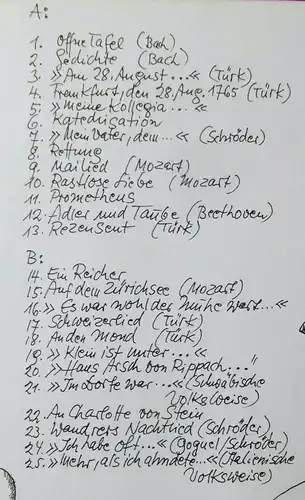 A:
1. Offne Tafel (Bach)
2. Gedichte (Bach)
3. »Am 28. August...« (Türk)
4. Frankfurt, den 28. Aug. 1765 (Türk)
5. »Meine Kollegia...«
6. Katechisation
7. »Mein Vater, dem...« (Schröder)
8. Rettung
9. Mailied (Mozart)
10. Rastlose Liebe (Mozart)
11. Prometheus
12. Adler und Taube (Beethoven)
13. Rezensent (Türk)
B:
14. Ein Reicher
15. Auf dem Zürichsee (Mozart)
16. »Es war wohl der Mühe wert...«
17. Schweizerlied (Türk)
18. An den Mond (Türk)
19. »Klein ist unter...«
20. »Hans Arsch von Rippach..."
21. »Im Dorfe war...« (Schwäbische
Volksweise)
22. An Charlotte von Stein
23. Wandrers Nachtlied (Schröder)
24. »Ich habe oft...« (Goguel/Schröder)
25. »Mehr, als ich ahndete...« (Italienische
Volksweise)